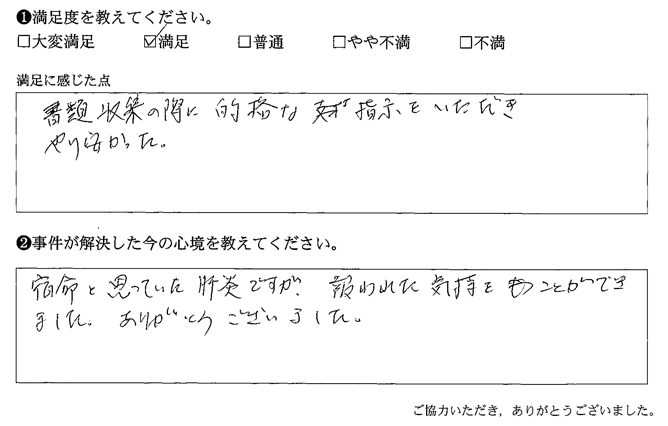 ❶満足度を教えてください。
□大変満足 ☑満足 □普通 □やや不満 □不満
満足に感じた点
書類収集の際に的格な指示をいただき
やり安かった。
❷事件が解決した今の心境を教えてください。
宿命と思っていた肝炎ですが、報われた気持をもつことができ
ました。ありがとうございました。
ご協力いただき，ありがとうございました。